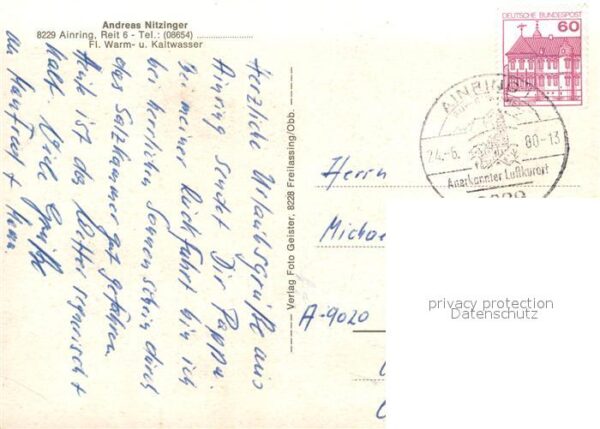 Andreas Nitzinger
8229 Ainring, Reit 6 - Tel.: (08654)
Fl. Warm- u. Kaltwasser
Herzliche Urlaubsgrüße aus
Ainring sendet Dir Pappa.
Bei meiner Rückfahrt bin ich
bei herrlichen Sonnenschein durch
das Salzkammergut gefahren.
Heute ist das Wetter regnerisch +
kalt. Viele Grüße
an Manfred +
Verlag Foto Geister, 8228 Freilassing/Obb.
DEUTSCHE BUNDESPOST
60
AINRING
24.-6. 80-13
Anerkannter Luftkurort
Herrn
Michae
A-9020
privacy protection
Datenschutz